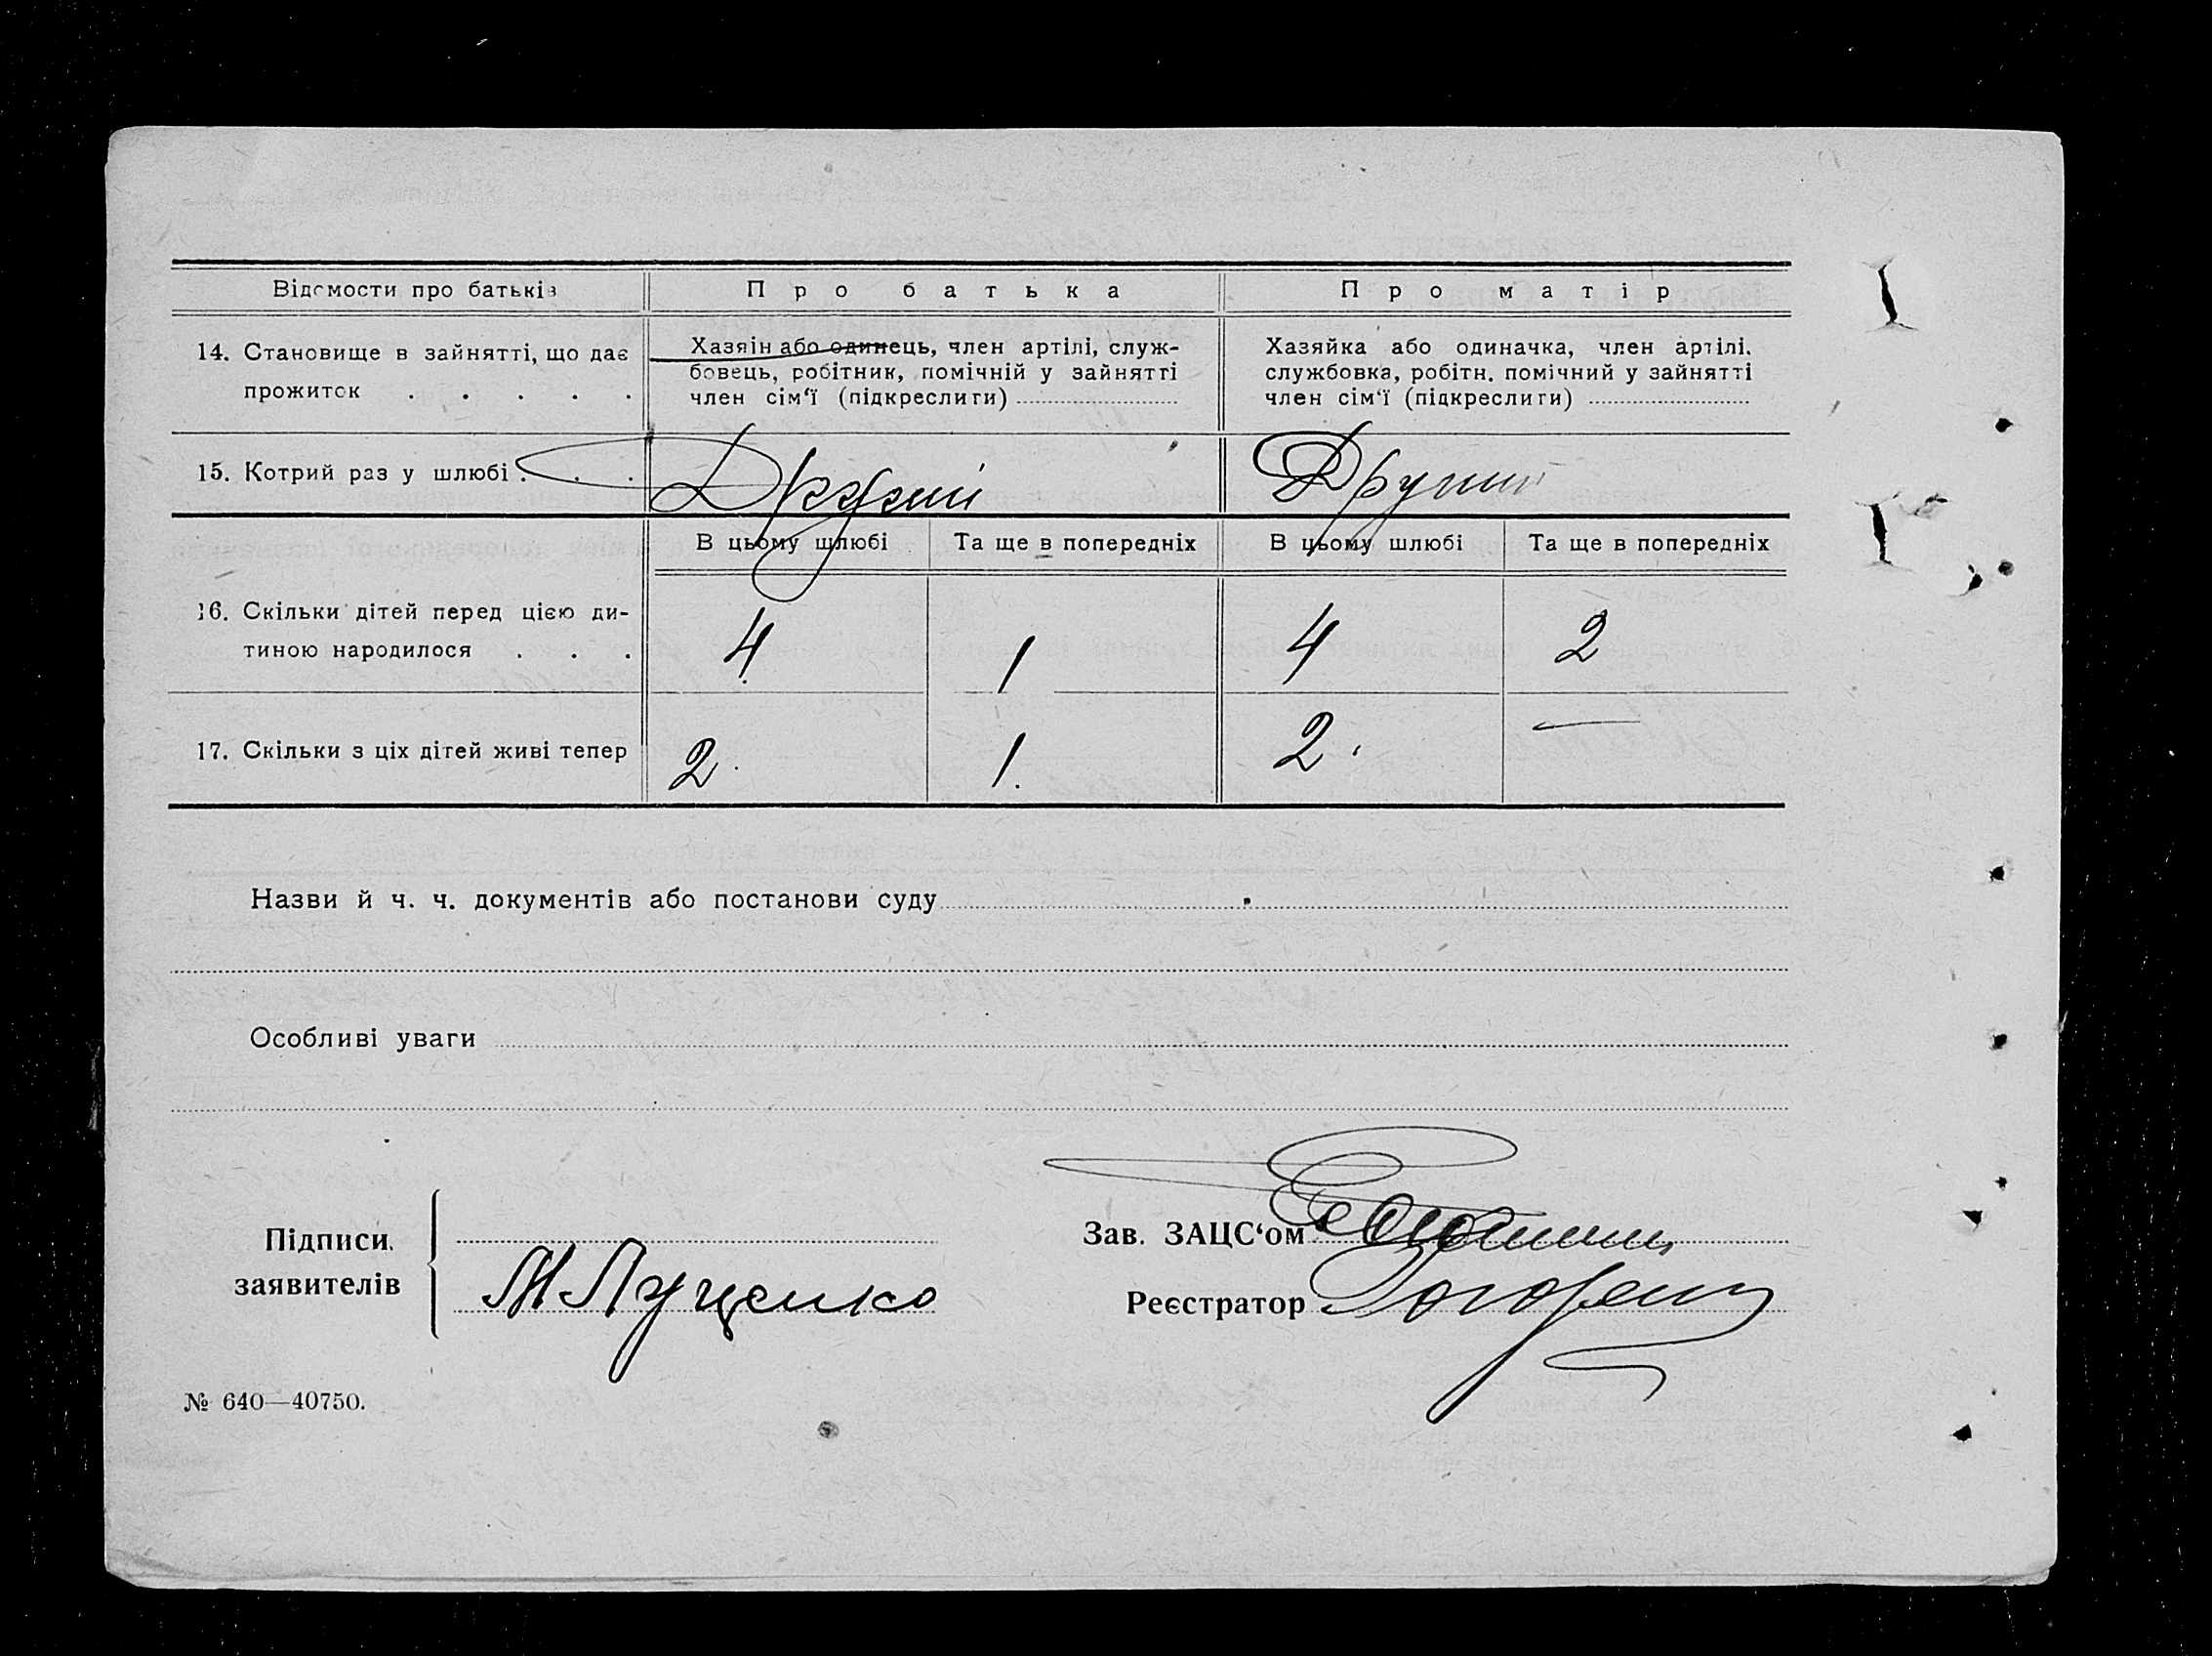 Відомости про батьків
Про батька
Про матір
14. Становище в зайнятті, що дає
прожиток . . . . .
Хазяїн або одинець, член артілі, служ-
бовець, робітник, помічній у зайнятті
член сім‘ї (підкреслити)
Хазяйка або одиначка, член артілі,
службовка, робітн. помічний у зайнятті
член сім‘ї (підкреслити)
15. Котрий раз у шлюбі . . .
Другий
Другий
В цьому шлюбі
Та ще в попередніх
В цьому шлюбі
Та ще в попередніх
16. Скільки дітей перед цією ди-
тиною народилося . . .
4
1
4
2
17. Скільки з ціх дітей живі тепер
2
1.
2.
—
Назви й ч. ч. документів або постанови суду
Особливі уваги
Підписи
заявителів
М Луценко
Зав. ЗАЦС‘ом
Реєстратор
№ 640—40750.